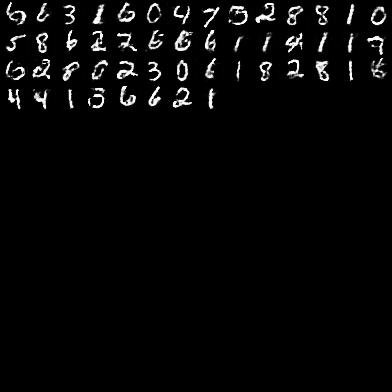 6 6 3 1 6 0 4 7 5 2 8 8 1 0
5 8 6 2 2 6 6 6 1 1 4 1 1 9
6 2 8 0 2 3 0 6 1 8 2 8 1 6
4 4 1 5 6 6 2 1